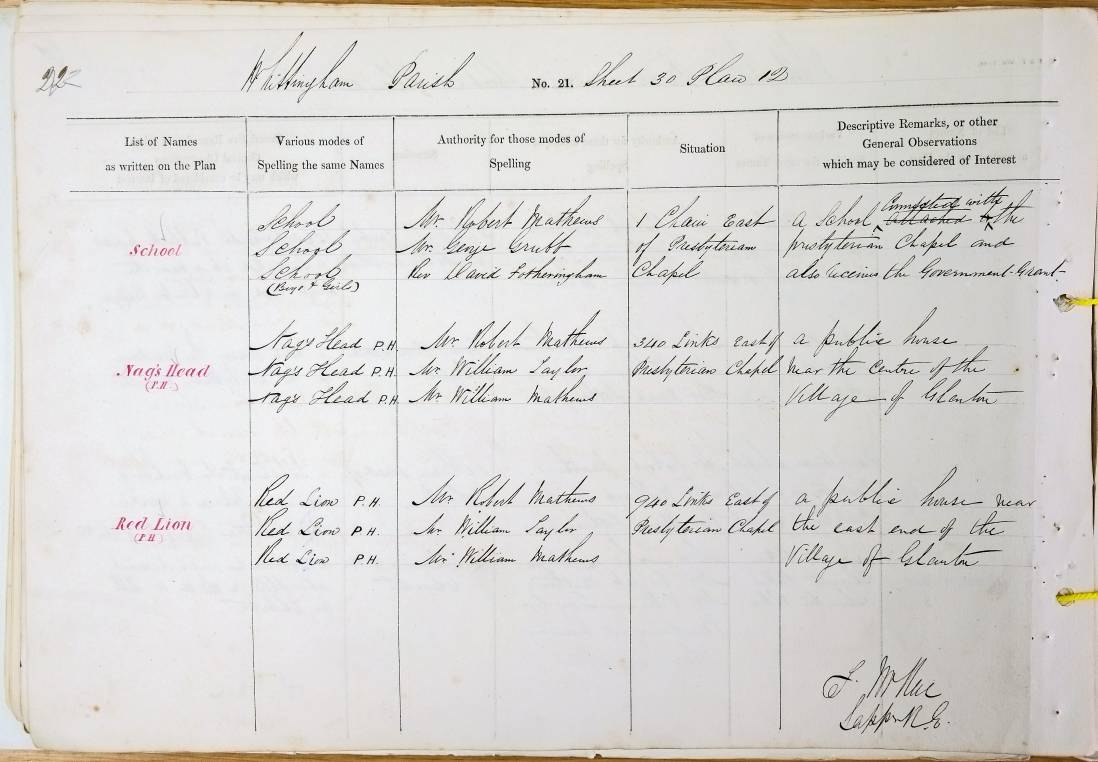 22
Whittingham Parish No. 21. Sheet 30 Plan 12
List of Names
as written on the Plan
Various modes of
Spelling the same Names
Authority for those modes of
Spelling
Situation
Descriptive Remarks, or other
General Observations
which may be considered of Interest
School
School
School
School
(Boys & Girls)
Mr. Robert Mathews
Mr. George Grubb
Rev David Fotheringham
1 Chain East
of Presbyterian
Chapel
Connected with
a School attached to the
presbyterian Chapel and
also receives the Government Grant
Nag's Head
(P.H.)
Nag's Head P.H.
Nag's Head P.H.
Nag's Head P.H.
Mr. Robert Mathews
Mr. William Taylor
Mr. William Mathews
340 Links East of
Presbyterian Chapel
a public house
near the centre of the
Village of Glanton
Red Lion
(P.H)
Red Lion P.H.
Red Lion P.H.
Red Lion P.H.
Mr. Robert Mathews
Mr. William Taylor
Mr. William Mathews
940 Links East of
Presbyterian Chapel
a public house near
the east end of the
Village of Glanton
Sapper R.E.